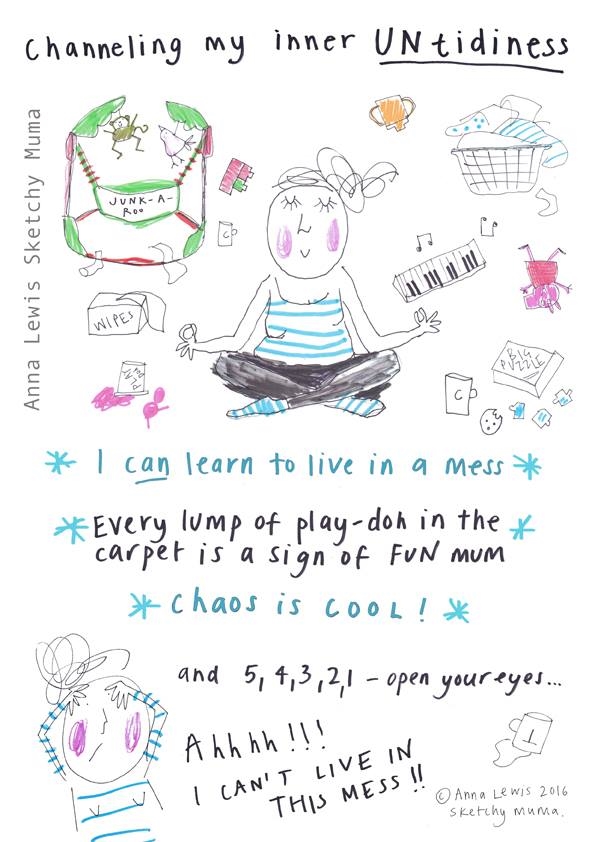 Channeling my inner UNtidiness
Anna Lewis Sketchy Muma
JUNK-A-
ROO
C
WIPES
BIG
PUZZLE
C
* I can learn to live in a mess *
* Every lump of play-doh in the *
carpet is a sign of FUN MUM
* Chaos is COOL! *
and 5, 4, 3, 2, 1 - open your eyes...
Ahhhh!!!
I CAN'T LIVE IN
THIS MESS!!
T
© Anna Lewis 2016
Sketchy Muma.